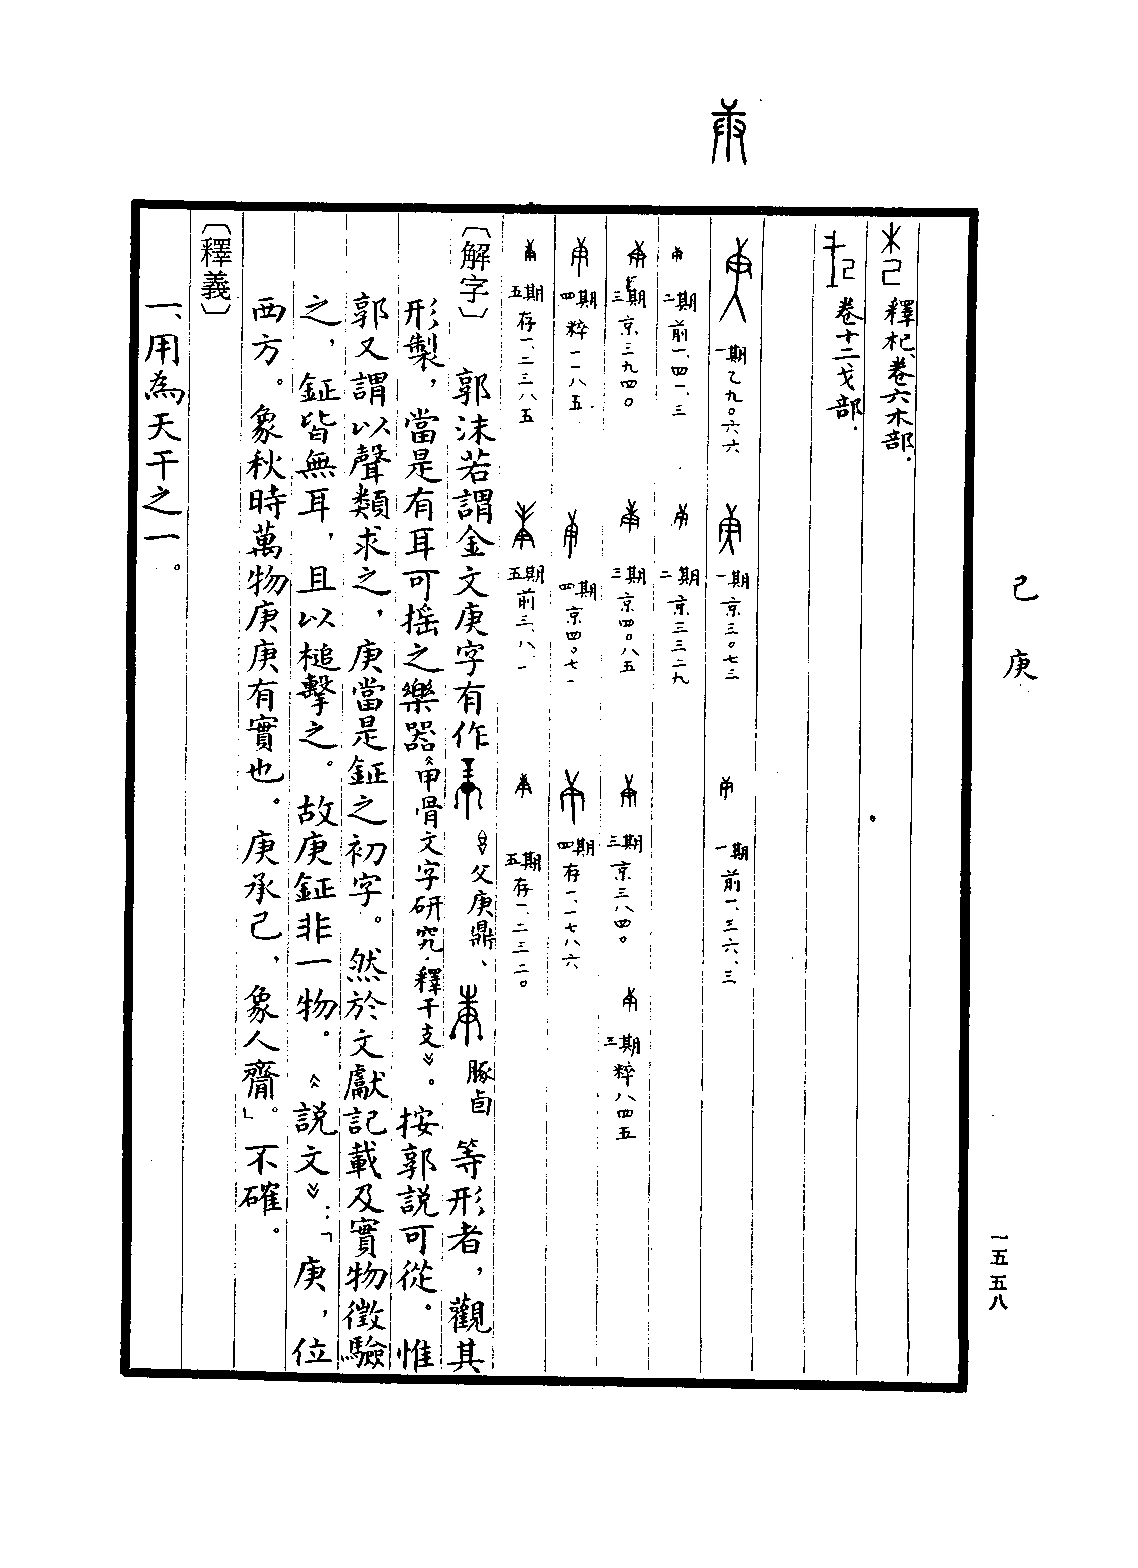 己庚
一五五八
釋杞、卷六木部.
卷十二戈部.
一期乙九〇六六
一期京三〇七三
一期前一、三六、三
二期前一、四一、三
二期京三三二九
三期京三九四〇
三期京四〇八五
三期京三八四〇
三期粹八四五
四期粹一一八五
四期京四〇七一
四期存一、一七八六
五期存一、二三八五
五期前三、八、一
五期存一、二三二〇
〔解字〕 郭沫若謂金文庚字有作《父庚鼎、豚卣等形者，觀其
形製，當是有耳可搖之樂器《甲骨文字研究·釋干支》。按郭說可從。惟
郭又謂以聲類求之，庚當是鉦之初字。然於文獻記載及實物徵驗
之，鉦皆無耳，且以槌擊之。故庚鉦非一物。《說文》：「庚，位
西方。象秋時萬物庚庚有實也。庚承己，象人齎」。不確。
〔釋義〕
一、用為天干之一。